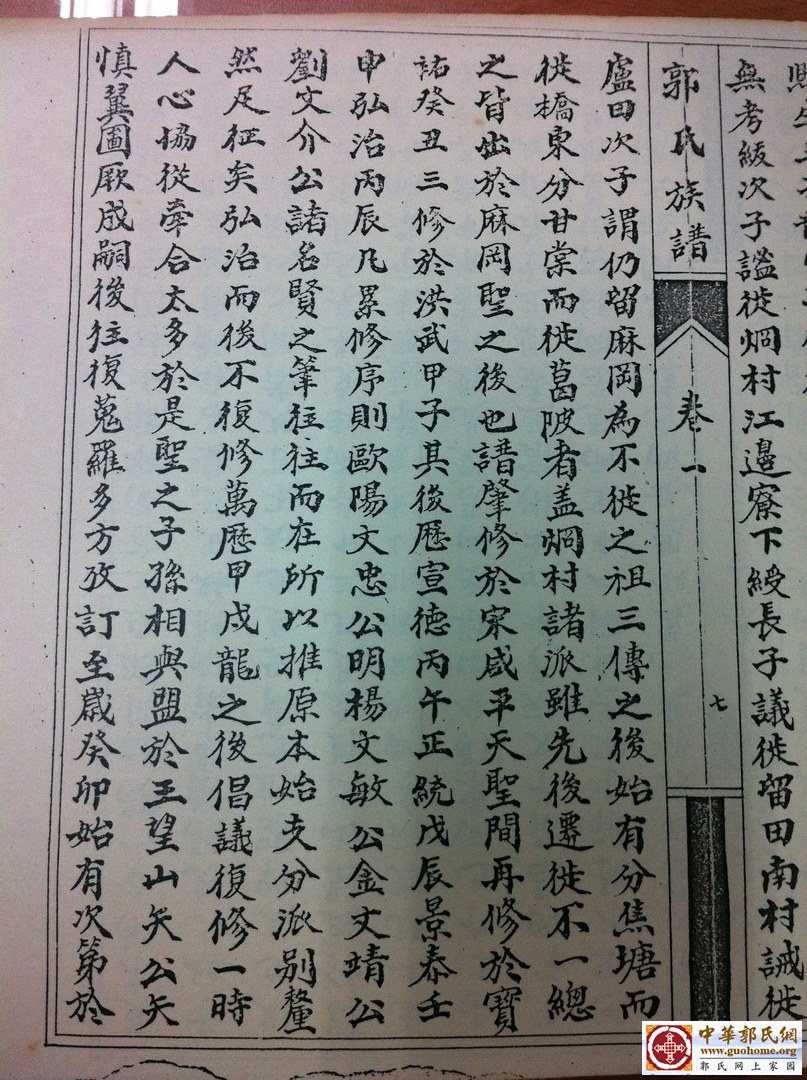 無考綬次子謐徙烱村江邊寮下綬長子議徙留田南村誠徙
郭氏族譜 卷一 七
盧田次子謂仍留麻岡為不徙之祖三傳之後始有分焦塘而
徙橋東分甘棠而徙葛陂者盖烱村諸派雖先後遷徙不一總
之皆出於麻岡聖之後也譜肇修於宋咸平天聖間再修於寶
祐癸丑三修於洪武甲子其後歷宣德丙午正統戊辰景泰壬
申弘治丙辰凡累修序則歐陽文忠公明楊文敏公金文靖公
劉文介公諸名賢之筆往往而在所以推原本始支分派别釐
然足征矣弘治而後不復修萬歷甲戌龍之後倡議復修一時
人心協從牽合太多於是聖之子孫相與盟於王望山矢公矢
慎翼圖厥成嗣後往復蒐羅多方攷訂至歲癸卯始有次第於
中華郭氏網
www.guohome.org
郭氏網上家園